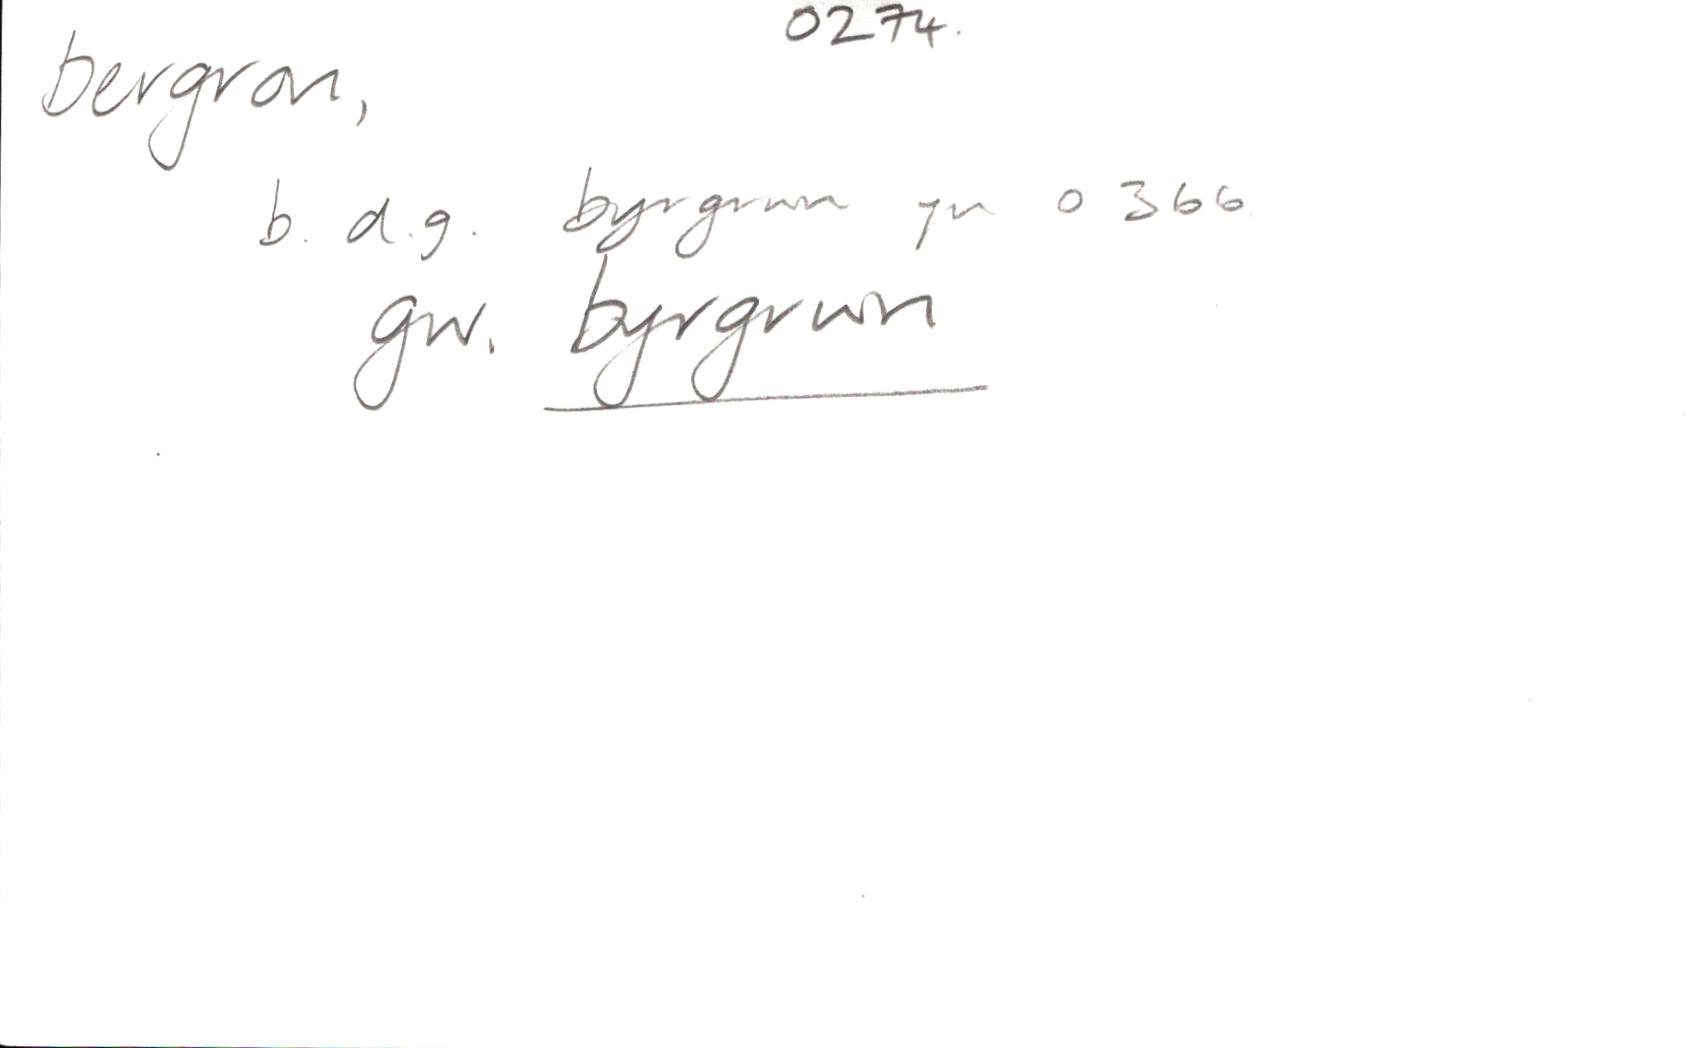 0274.
bergron,
b. d.g. byrgrwn yn 0366
gw. byrgrwn